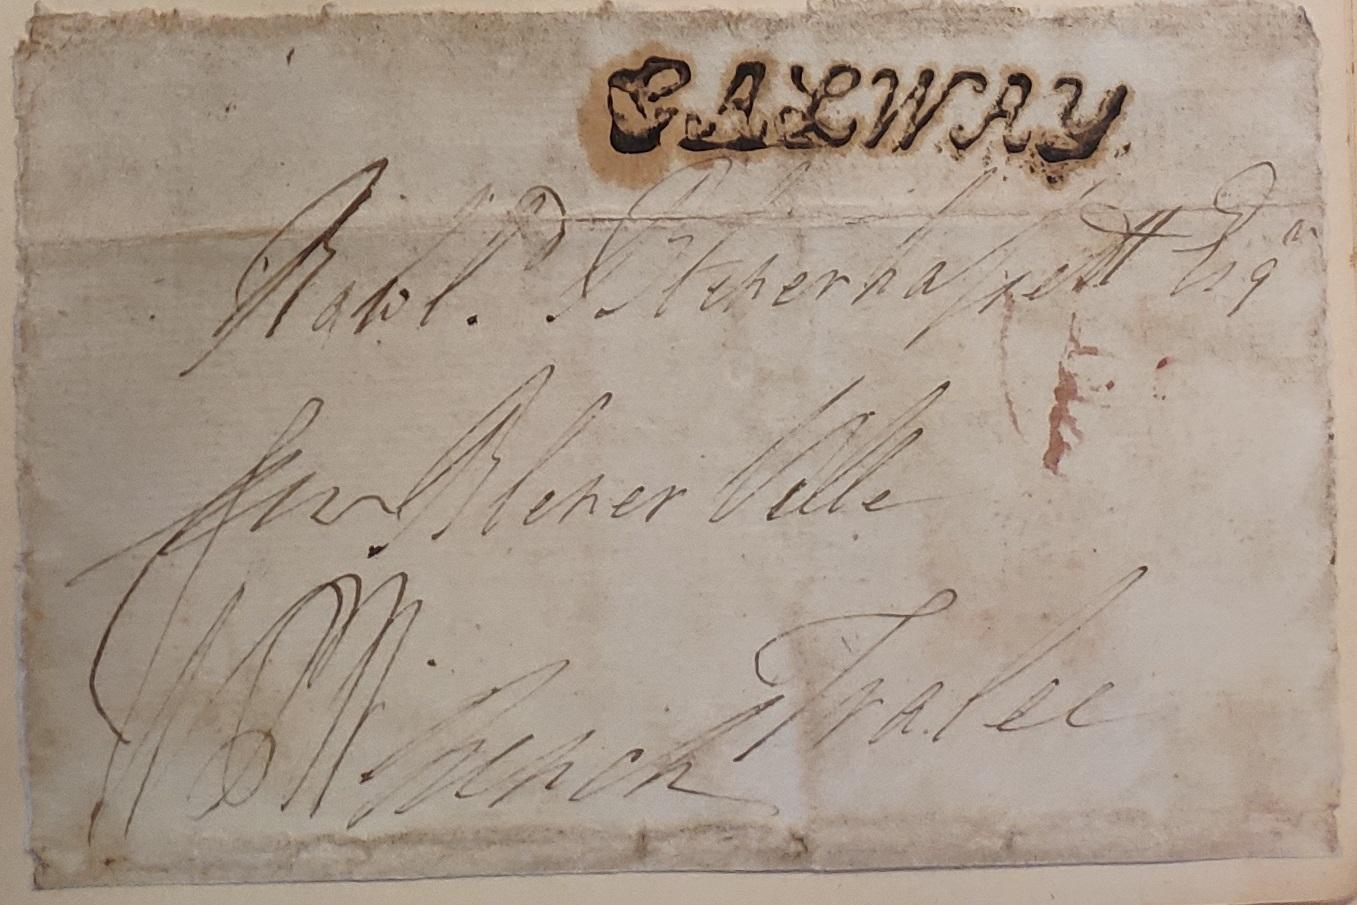 GALWAY
Rowl.d Blenerhassett Esqr
Blener Ville
Tralee
French